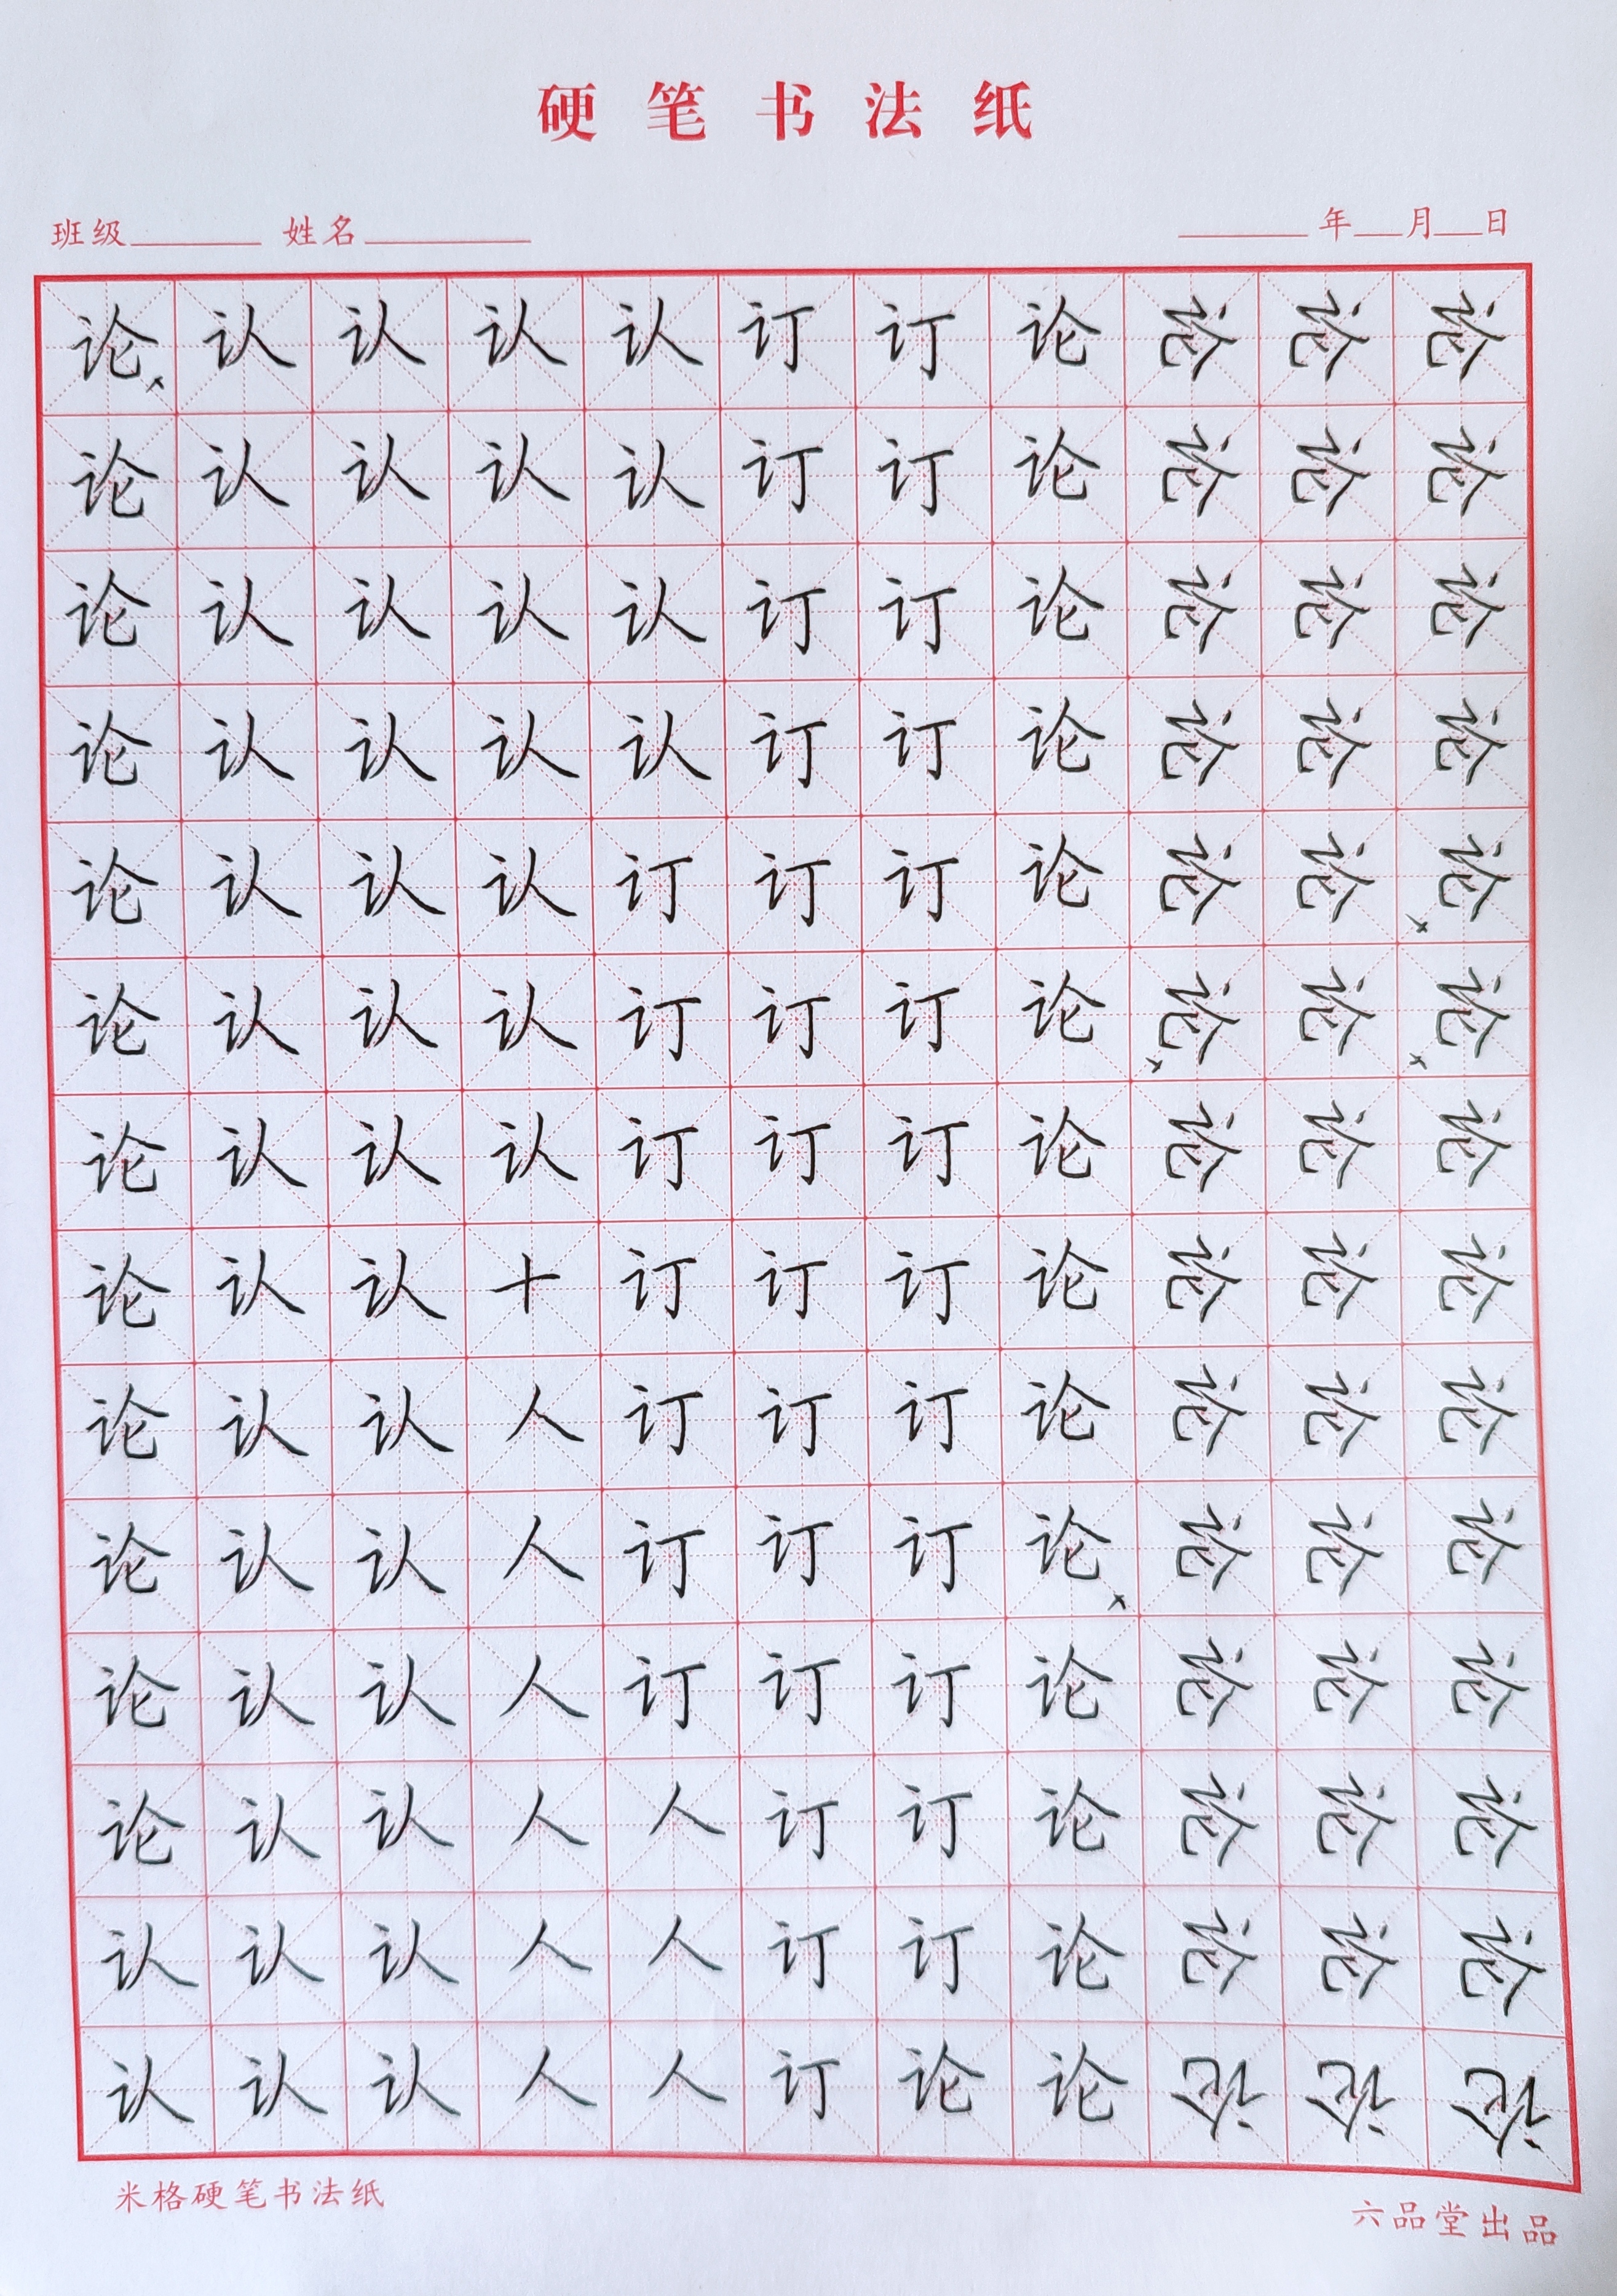 硬笔书法纸
班级 姓名 年 月 日
论认认认认订订论论论论
论认认认认订订论论论论
论认认认认订订论论论论
论认认认认订订论论论论
论认认认订订订论论论论
论认认认订订订论论论论
论认认认订订订论论论论
论认认十订订订论论论论
论认认人订订订论论论论
论认认人订订订论论论论
论认认人订订订论论论论
论认认人人订订论论论论
认认认人人订订论论论论
认认认人人订论论论论论
米格硬笔书法纸
六品堂出品